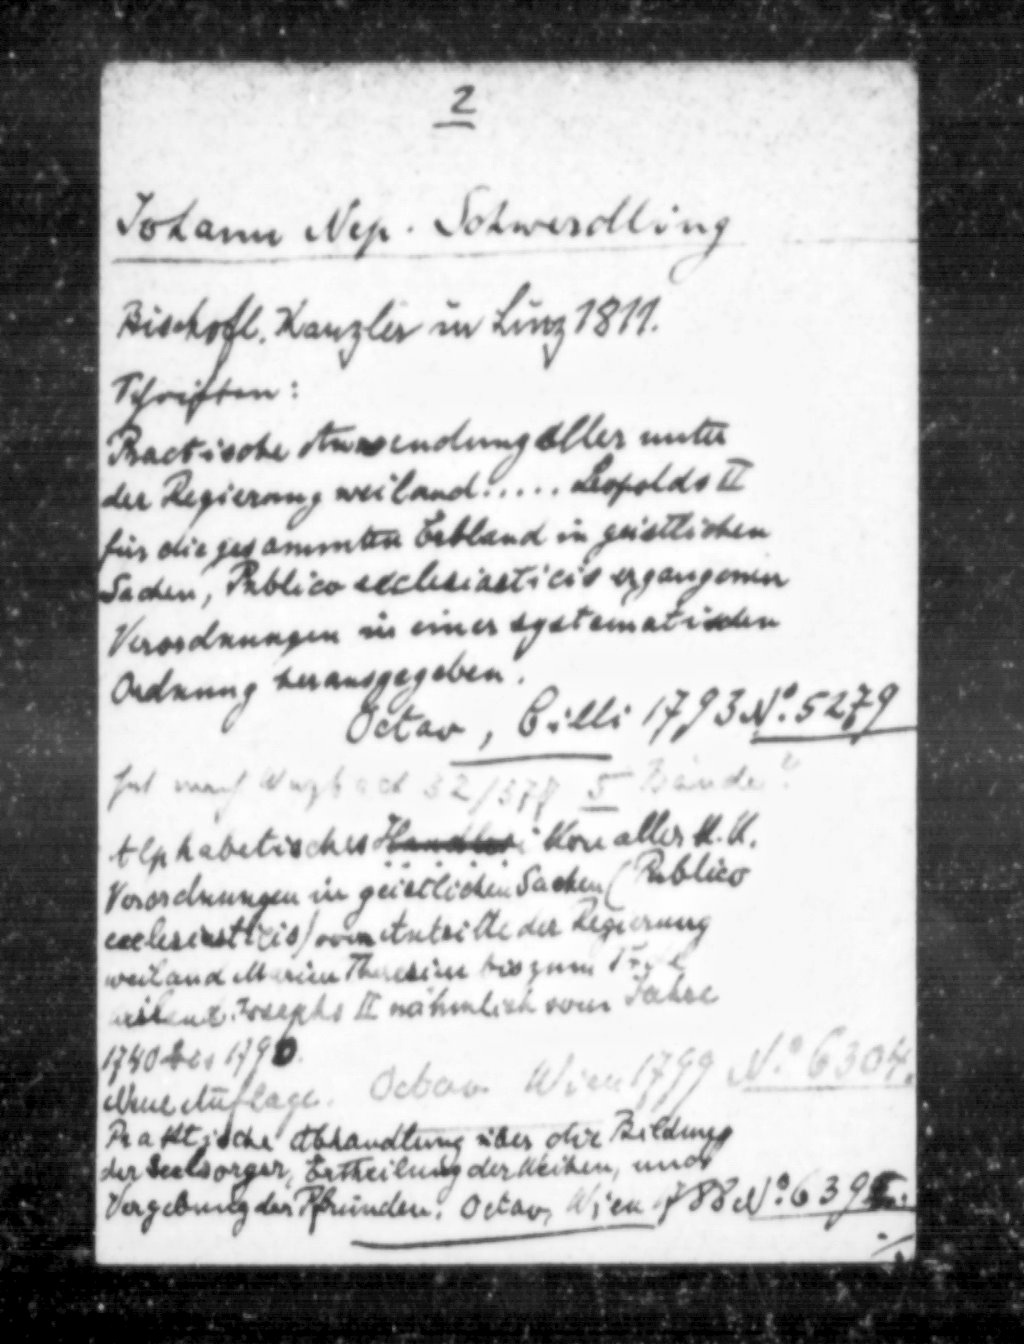 2
Johann Nep. Schwerdling
Bischofl. Kanzler in Linz 1811.
Schriften:
Practische Anwendung aller unter
der Regierung weiland..... Leopolds II
für die gesammten Erbland in geistlichen
Sachen, Publico ecclesiasticis ergangenen
Verordnungen in einer systematischen
Ordnung herausgegeben.
Octav, Cilli 1793 No. 5279
32/378 5 Bände
Alphabetisches aller K.K.
Verordnungen in geistlichen Sachen (Publico
ecclesiasticis) vom Antritte der Regierung
weiland Marien Theresien bis zum
Josephs II nähmlich vom Jahre
1740 bis 1790.
Neue Auflage. Octav Wien 1799 No. 6304.
Praktische Abhandlung über die Bildung
der Seelsorger, Ertheilung der Weihen, und
Vergebung der Pfründen. Octav, Wien 1788 No. 639